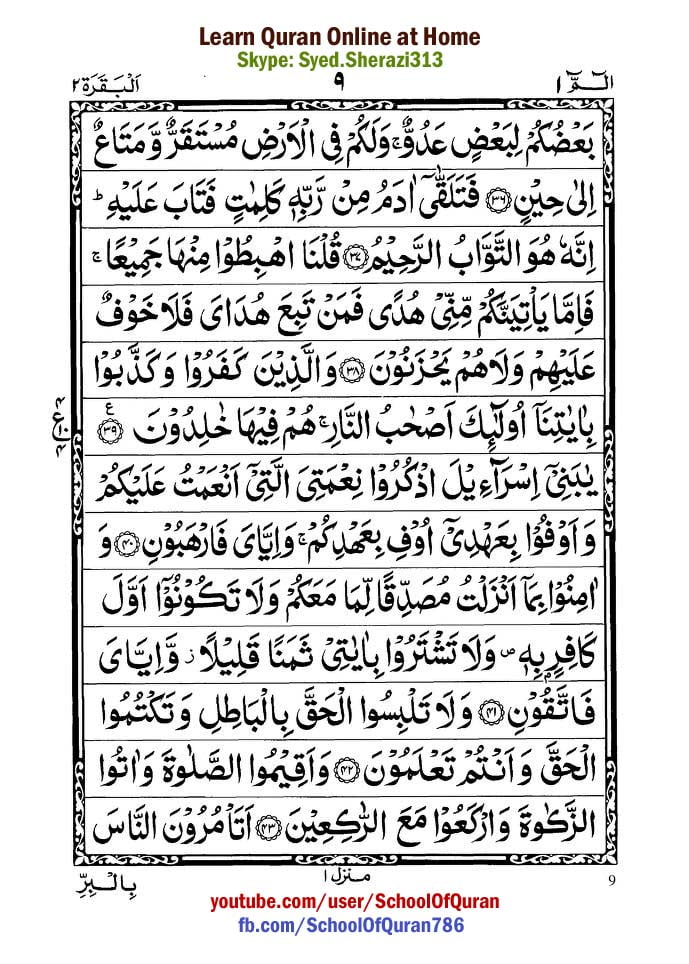 Learn Quran Online at Home
Skype: Syed.Sherazi313
الٓمّٓ ١ ٩ اَلْبَقَرَة ٢
بَعْضُكُمْ لِبَعْضٍ عَدُوٌّ ۚ وَلَكُمْ فِی الْاَرْضِ مُسْتَقَرٌّ وَّ مَتَاعٌ
اِلٰی حِیْنٍ ﴿۳۶﴾ فَتَلَقّٰۤی اٰدَمُ مِنْ رَّبِّهٖ كَلِمٰتٍ فَتَابَ عَلَیْهِ ؕ
اِنَّهٗ هُوَ التَّوَّابُ الرَّحِیْمُ ﴿۳۷﴾ قُلْنَا اهْبِطُوْا مِنْهَا جَمِیْعًا ۚ
فَاِمَّا یَاْتِیَنَّكُمْ مِّنِّیْ هُدًی فَمَنْ تَبِعَ هُدَایَ فَلَا خَوْفٌ
عَلَیْهِمْ وَلَا هُمْ یَحْزَنُوْنَ ﴿۳۸﴾ وَالَّذِیْنَ كَفَرُوْا وَ كَذَّبُوْا
بِاٰیٰتِنَاۤ اُولٰٓئِكَ اَصْحٰبُ النَّارِ ۚ هُمْ فِیْهَا خٰلِدُوْنَ ﴿۳۹﴾ ع
٤ ع ١٠ ٤
یٰبَنِیْۤ اِسْرَآءِیْلَ اذْكُرُوْا نِعْمَتِیَ الَّتِیْۤ اَنْعَمْتُ عَلَیْكُمْ
وَ اَوْفُوْا بِعَهْدِیْۤ اُوْفِ بِعَهْدِكُمْ ۚ وَ اِیَّایَ فَارْهَبُوْنِ ﴿۴۰﴾ وَ
اٰمِنُوْا بِمَاۤ اَنْزَلْتُ مُصَدِّقًا لِّمَا مَعَكُمْ وَلَا تَكُوْنُوْۤا اَوَّلَ
كَافِرٍۭ بِهٖ ۪ وَلَا تَشْتَرُوْا بِاٰیٰتِیْ ثَمَنًا قَلِیْلًا ؗ وَّ اِیَّایَ
فَاتَّقُوْنِ ﴿۴۱﴾ وَلَا تَلْبِسُوا الْحَقَّ بِالْبَاطِلِ وَ تَكْتُمُوا
الْحَقَّ وَ اَنْتُمْ تَعْلَمُوْنَ ﴿۴۲﴾ وَاَقِیْمُوا الصَّلٰوةَ وَ اٰتُوا
الزَّكٰوةَ وَ ارْكَعُوْا مَعَ الرّٰكِعِیْنَ ﴿۴۳﴾ اَتَاْمُرُوْنَ النَّاسَ
بِالْبِرِّ منزل ١ 9
youtube.com/user/SchoolOfQuran
fb.com/SchoolOfQuran786